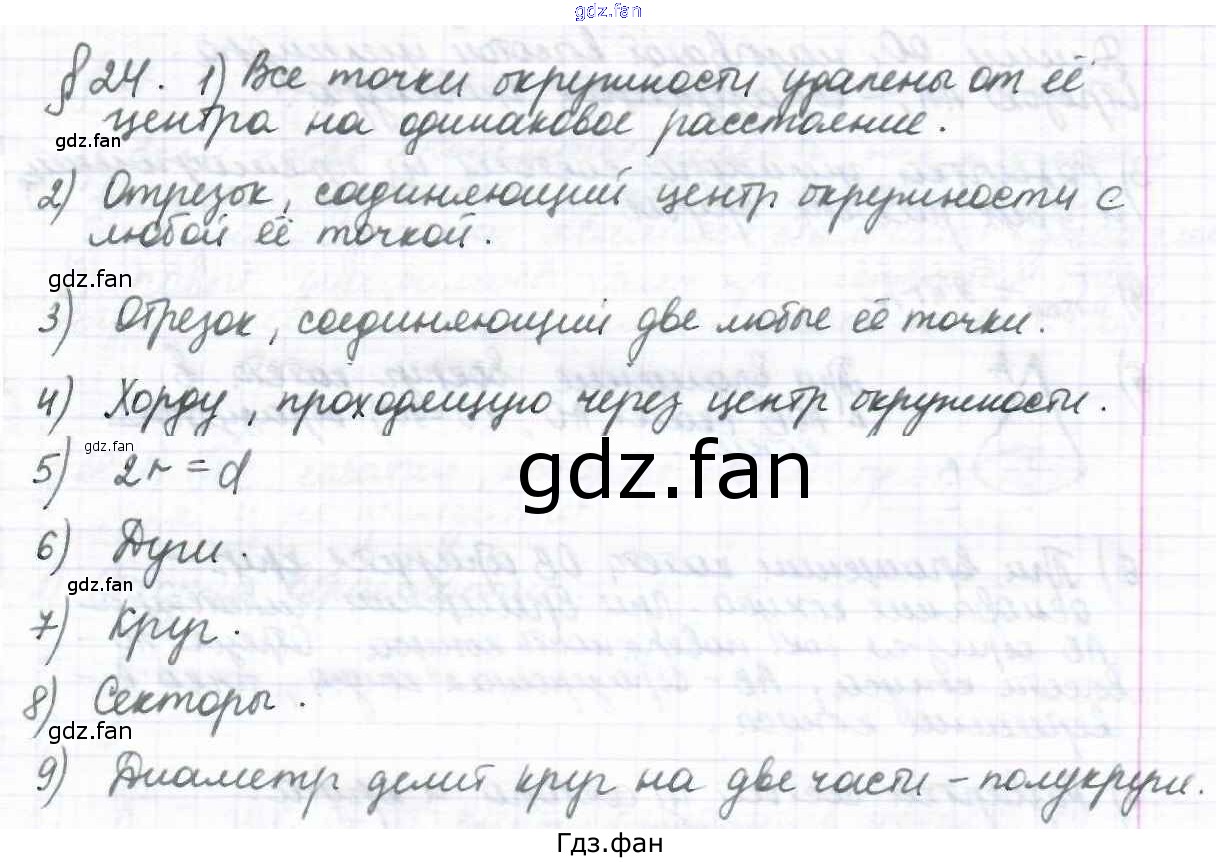 gdz.fan
§ 24. 1) Все точки окружности удалены от её
центра на одинаковое расстояние.
gdz.fan
2) Отрезок, соединяющий центр окружности с
любой её точкой.
gdz.fan
3) Отрезок, соединяющий две любые её точки.
4) Хорду, проходящую через центр окружности.
gdz.fan
5) 2r = d
gdz.fan
6) Дуги.
gdz.fan
7) Круг.
8) Секторы.
gdz.fan
9) Диаметр делит круг на две части – полукруги.
Гдз.фан